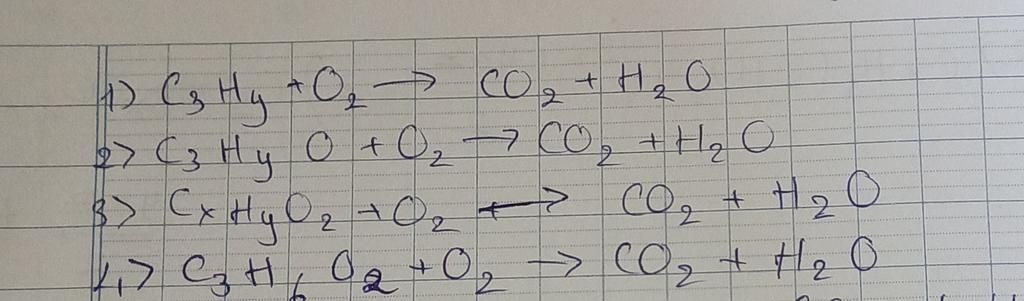 1) C₃Hy + O₂ → CO₂ + H₂O
2) C₃HyO + O₂ → CO₂ + H₂O
3) CxHyO₂ + O₂ → CO₂ + H₂O
4) C₃H₆O₂ + O₂ → CO₂ + H₂O